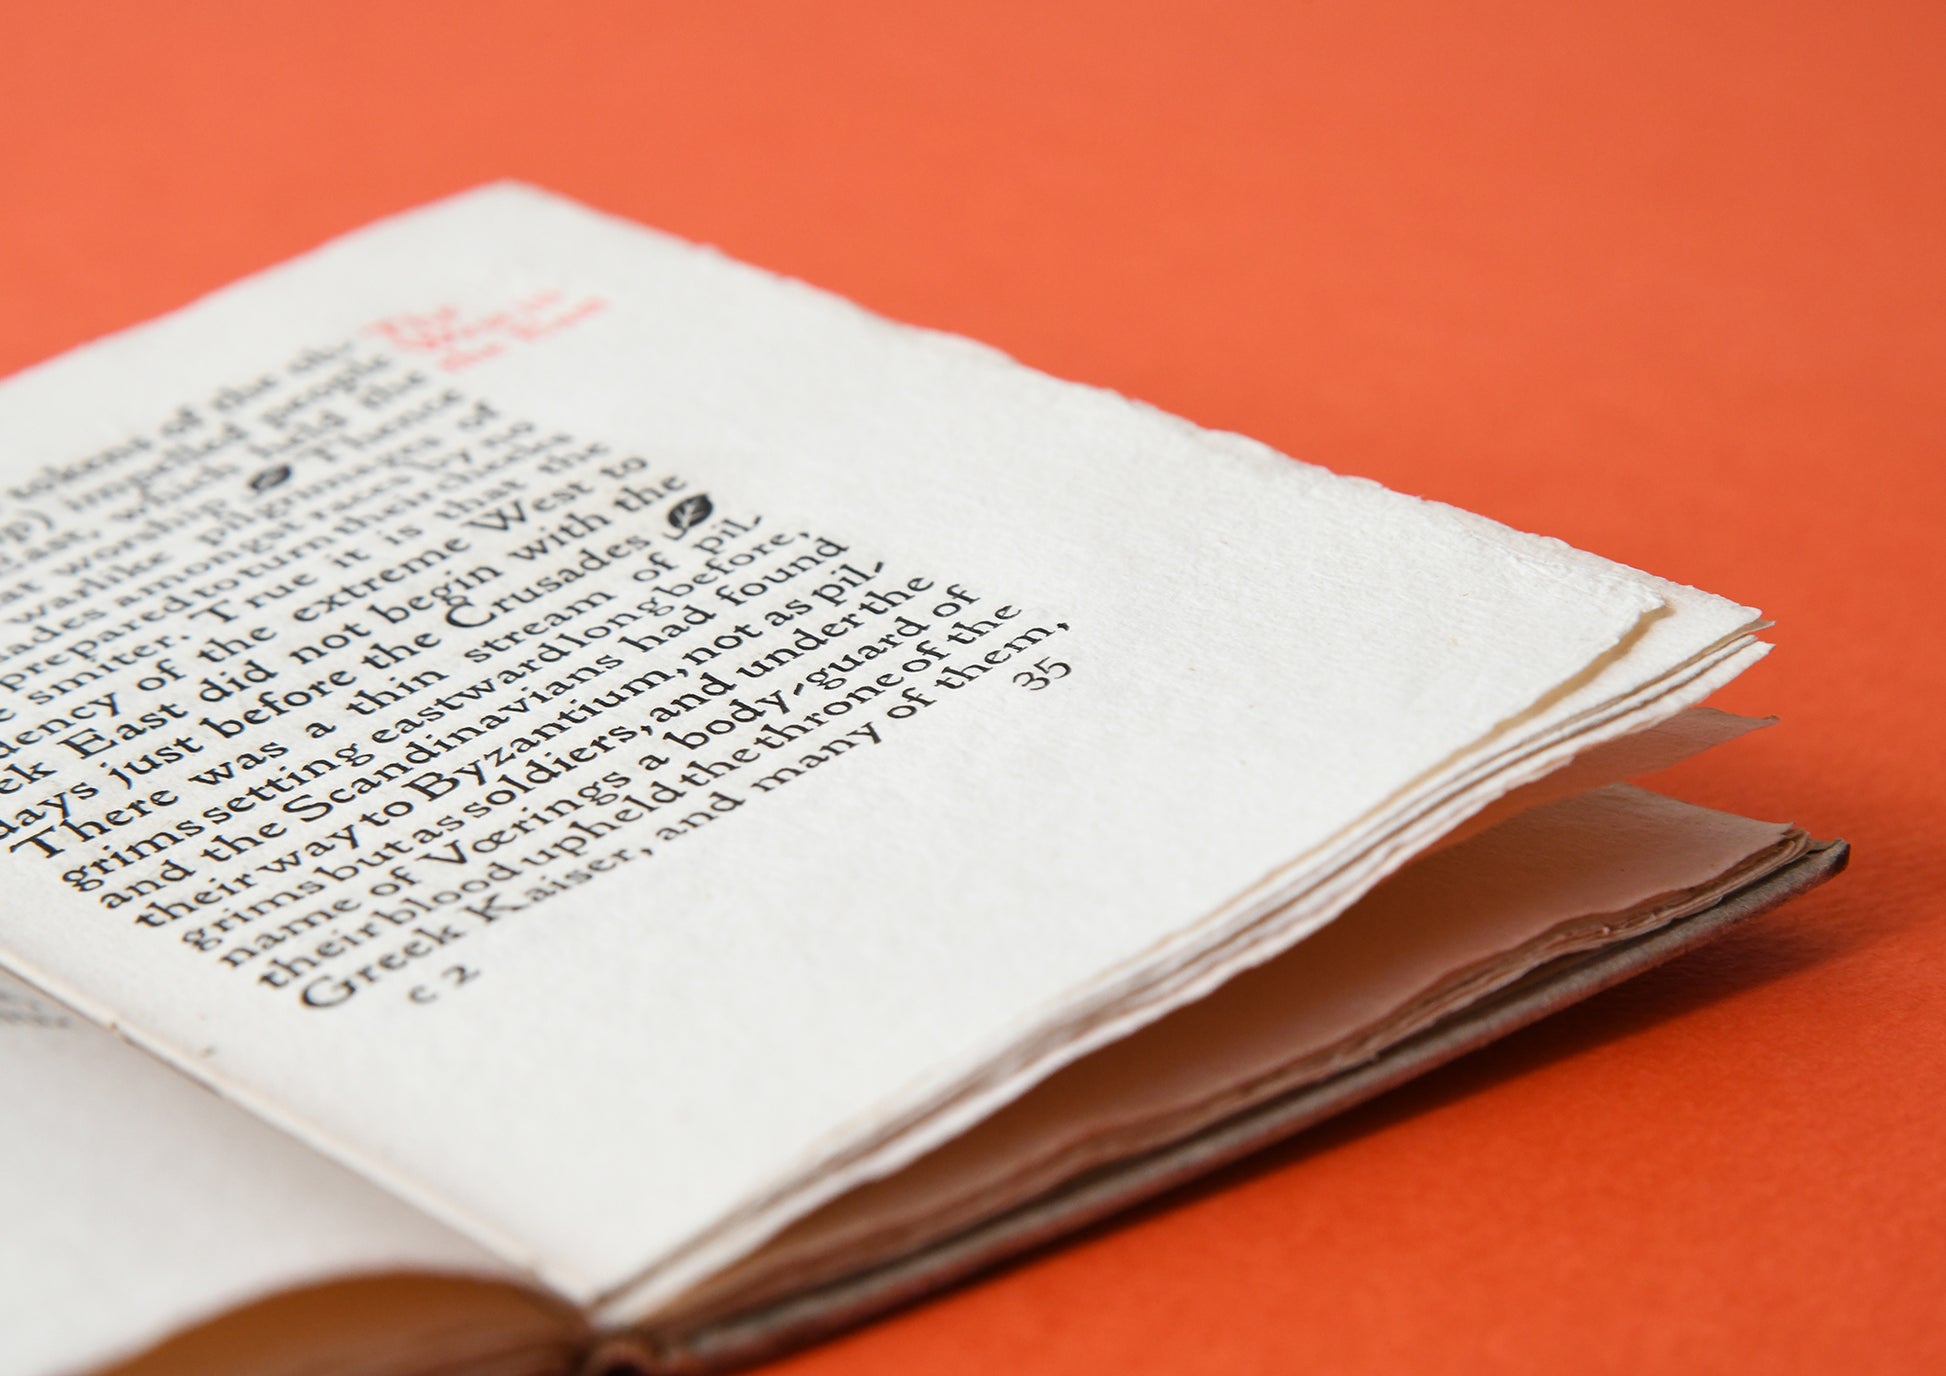 The
West in
the East
tokens of the oth-
p) impelled people
East, which held the
at worship Thence
warlike pilgrimages of
ades amongst races by no
prepared to turn their cheeks
e smiter. True it is that the
dency of the extreme West to
ek East did not begin with the
days just before the Crusades
There was a thin stream of pil-
grims setting eastward long before,
and the Scandinavians had found
their way to Byzantium, not as pil-
grims but as soldiers, and under the
name of Vœrings a body-guard of
their blood upheld the throne of the
Greek Kaiser, and many of them,
c 2 35